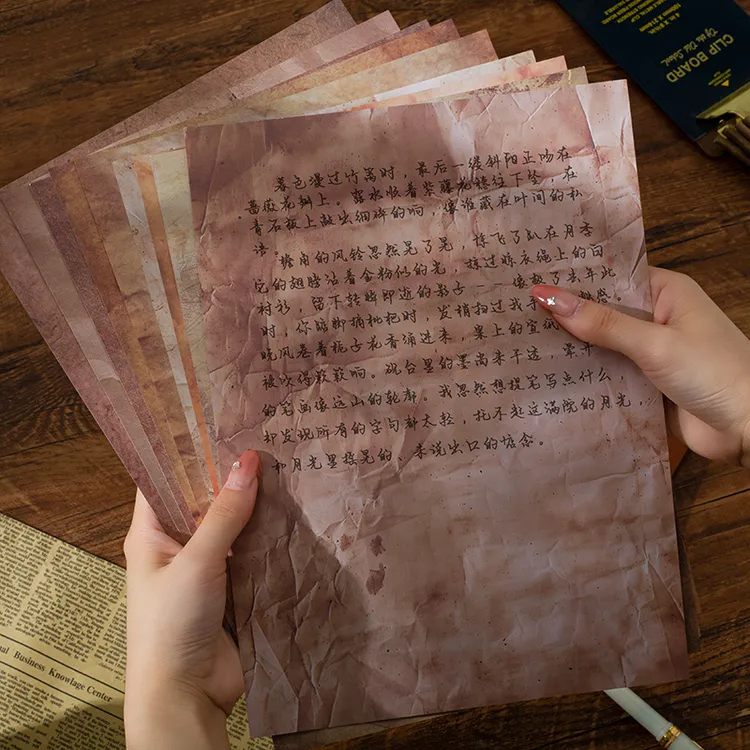 暮色漫过竹篱时，最后一缕斜阳正吻在
蔷薇花瓣上。露水顺着紫藤花穗往下坠，在
青石板上敲出细碎的响，像谁藏在叶间的私
语。檐角的风铃忽然晃了晃，惊飞了趴在月季
的翅膀沾着金粉似的光，掠过晾衣绳上的白
衬衫，留下转瞬即逝的影子——像极了去年此
时，你踮脚摘枇杷时，发梢扫过我手
晚风卷着栀子花香涌进来，案上的宣纸
被吹得簌簌响。砚台里的墨尚未干透，
的笔画像远山的轮廓。我忽然想提笔写点什么，
却发现所有的字句都太轻，托不起这满院的月光，
和月光里摇晃的、未说出口的惦念。
CLIP BOARD
By the Old School
Business Knowlage Center